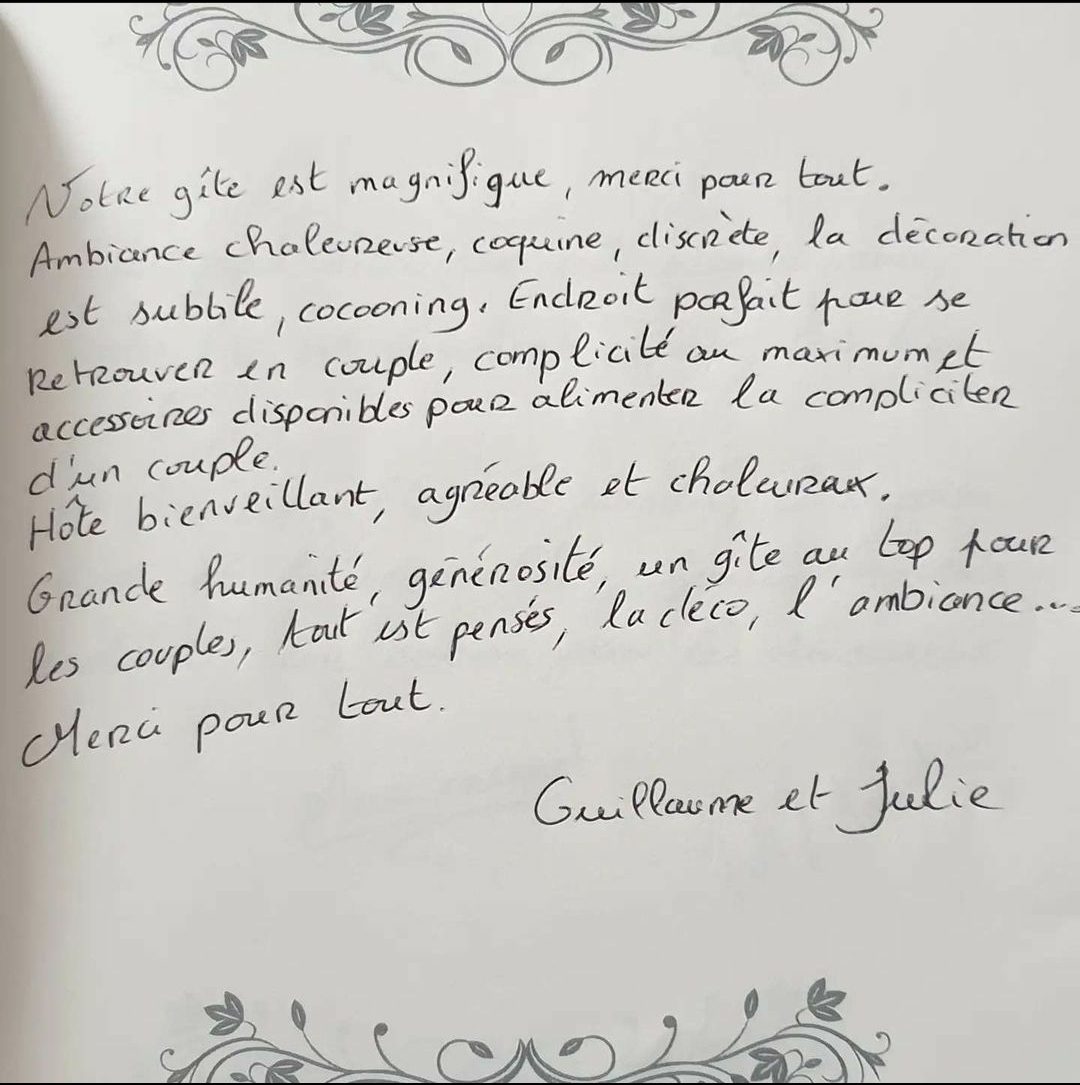 Notre gîte est magnifique, merci pour tout.
Ambiance chaleureuse, coquine, discrète, la décoration
est subtile, cocooning. Endroit parfait pour se
retrouver en couple, complicité au maximum et
accessoires disponibles pour alimenter la compliciter
d'un couple.
Hôte bienveillant, agréable et chaleureux.
Grande humanité, générosité, un gîte au top pour
les couples, tout est pensés, la déco, l'ambiance...
Merci pour tout.
Guillaume et Julie